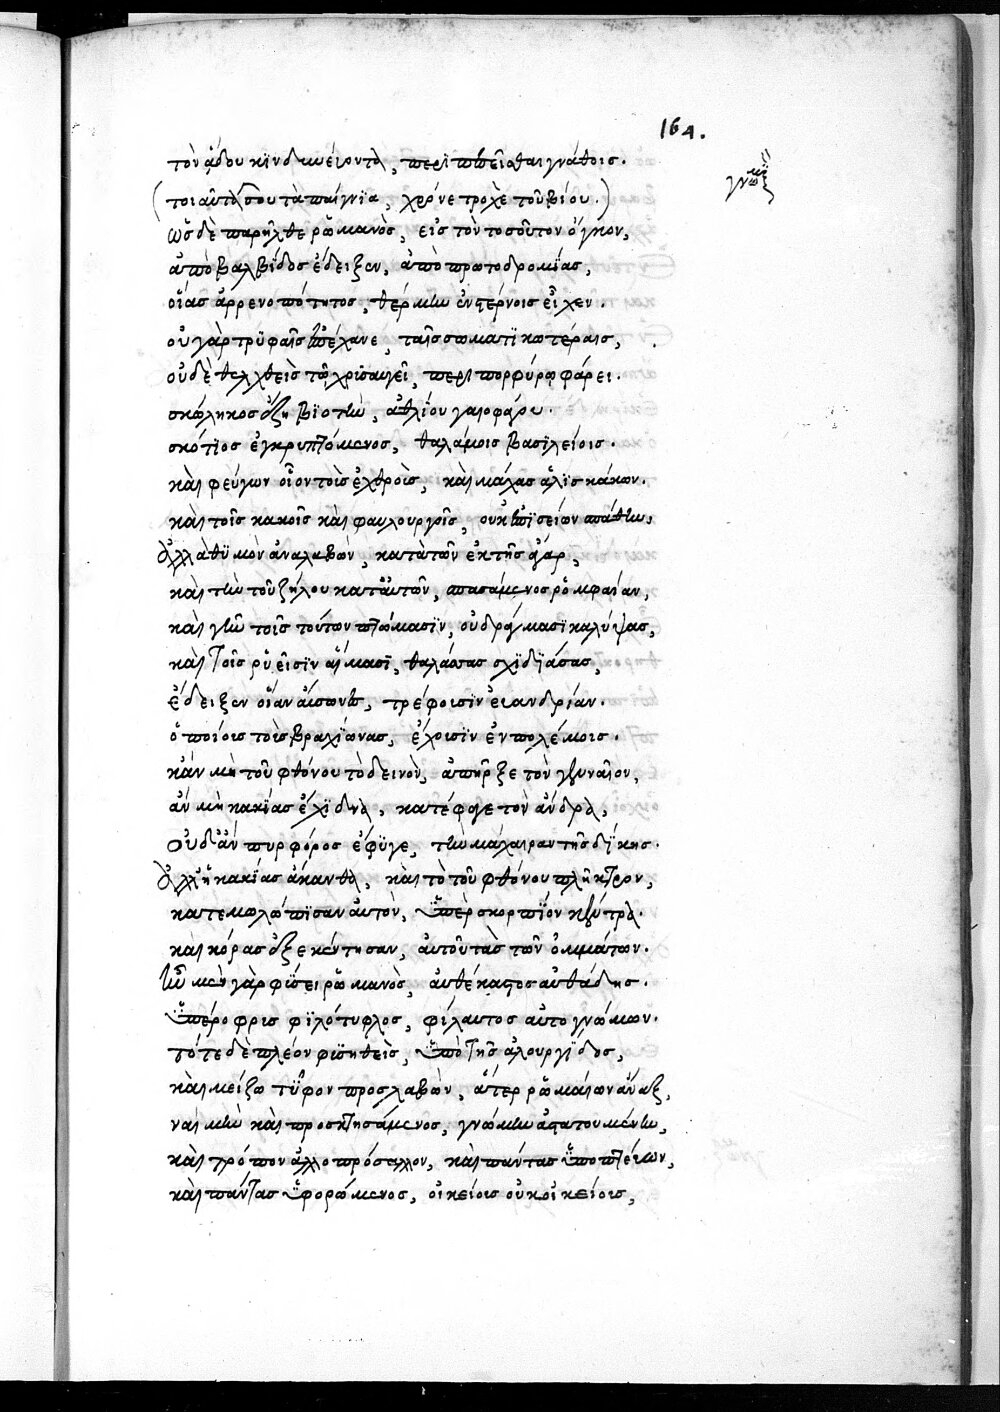 164.
τὸν ᾅδου κινδυνεύοντα, περιπαρῆναι γνάθοις.
(τοιαῦτά σου τὰ παίγνια, χρόνε τροχὲ τοῦ βίου.)
γνωμϊ
ὡς δὲ παρῆλθε ῥωμανὸς, εἰς τὸν τοσοῦτον ὄγκον,
ἀπὸ βαλβίδος ἔδειξεν, ἀπὸ πρωτοδρομίας,
οἵας ἀρρενοπότητος, θέρμην ἐν στέρνοις εἶχεν.
οὐ γὰρ τρυφαῖς ἐπέχανε, ταῖς σωματϊκωτέραις,
οὐδὲ θελχθεὶς τῷ χρυσαυγεῖ, περιπορφύρῳ φάρει.
σκώληκος ἔζη βϊοτὴν, ἀθλίου γαιοφάγου.
σκότϊος ἐγκρυπτόμενος, θαλάμοις βασϊλείοις.
καὶ φεύγων οἷον τοῖς ἐχθροῖς, καὶ μάχας ἅλϊς κάκων.
καὶ τοῖς κακοῖς καὶ φαυλουργοῖς, οὐκ ἐπϊσείων σπάθην,
ἀλλὰ θϋμὸν ἀναλαβὼν, κατὰ τῶν ἐκ τῆς ἄγαρ,
καὶ τὴν τοῦ ζήλου κατ' αὐτῶν, σπασάμενος ῥομφαίαν,
καὶ γῆν τοῖς τούτων πτώμασϊν, οὐ δράγμασϊ καλύψας,
καὶ τοῖς ῥύεισϊν αἵμασϊ, θαλάσσας σχϊδϊάσας,
ἔδειξεν οἵαν αὔσωνες, τρέφουσϊν εὐανδρίαν.
ὁποίοις τοῖς βραχίονας, ἔχουσϊν ἐν πολέμοις.
κἂν μὴ τοῦ φθόνου τὸ δεινὸν, ἀπῆρξε τὸν γενναῖον,
ἂν μὴ κακίας ἔχϊδνα, κατέφαγε τὸν ἄνδρα,
οὐδ' ἂν πυρφόρος ἔφϋγε, τὴν μάχαιραν τῆς δίκης.
ἀλλ' ἡ κακίας ἄκανθα, καὶ τὸ τοῦ φθόνου πλῆκτρον,
κατεμωλώπϊσαν αὐτὸν, ὑπὲρ σκορπίον κέντρα.
καὶ κόρας ἐξεκέντησαν, αὐτοῦ τὰς τῶν ὀμμάτων.
ἦν μὲν γὰρ φύσει ῥωμανὸς, αὐθέκαστος αὐθάδης.
ὑπέροφρις φϊλότυφλος, φίλαυτος αὐτογνώμων.
τότε δὲ πλέον φυσηθεὶς, ὑπὸ τῆς ἁλουργίδος,
καὶ μείζω τῦφον προσλαβὼν, ἅτερ ῥωμαίων ἄναξ,
ναὶ μὴν καὶ προσκτησάμενος, γνώμην ἀστατουμένην,
καὶ τρόπον ἀλλοπρόσαλλον, καὶ πάντας ὑποπτεύων,
καὶ πάντας ὑφορώμενος, οἰκείοις οὐκ οἰκείοις,